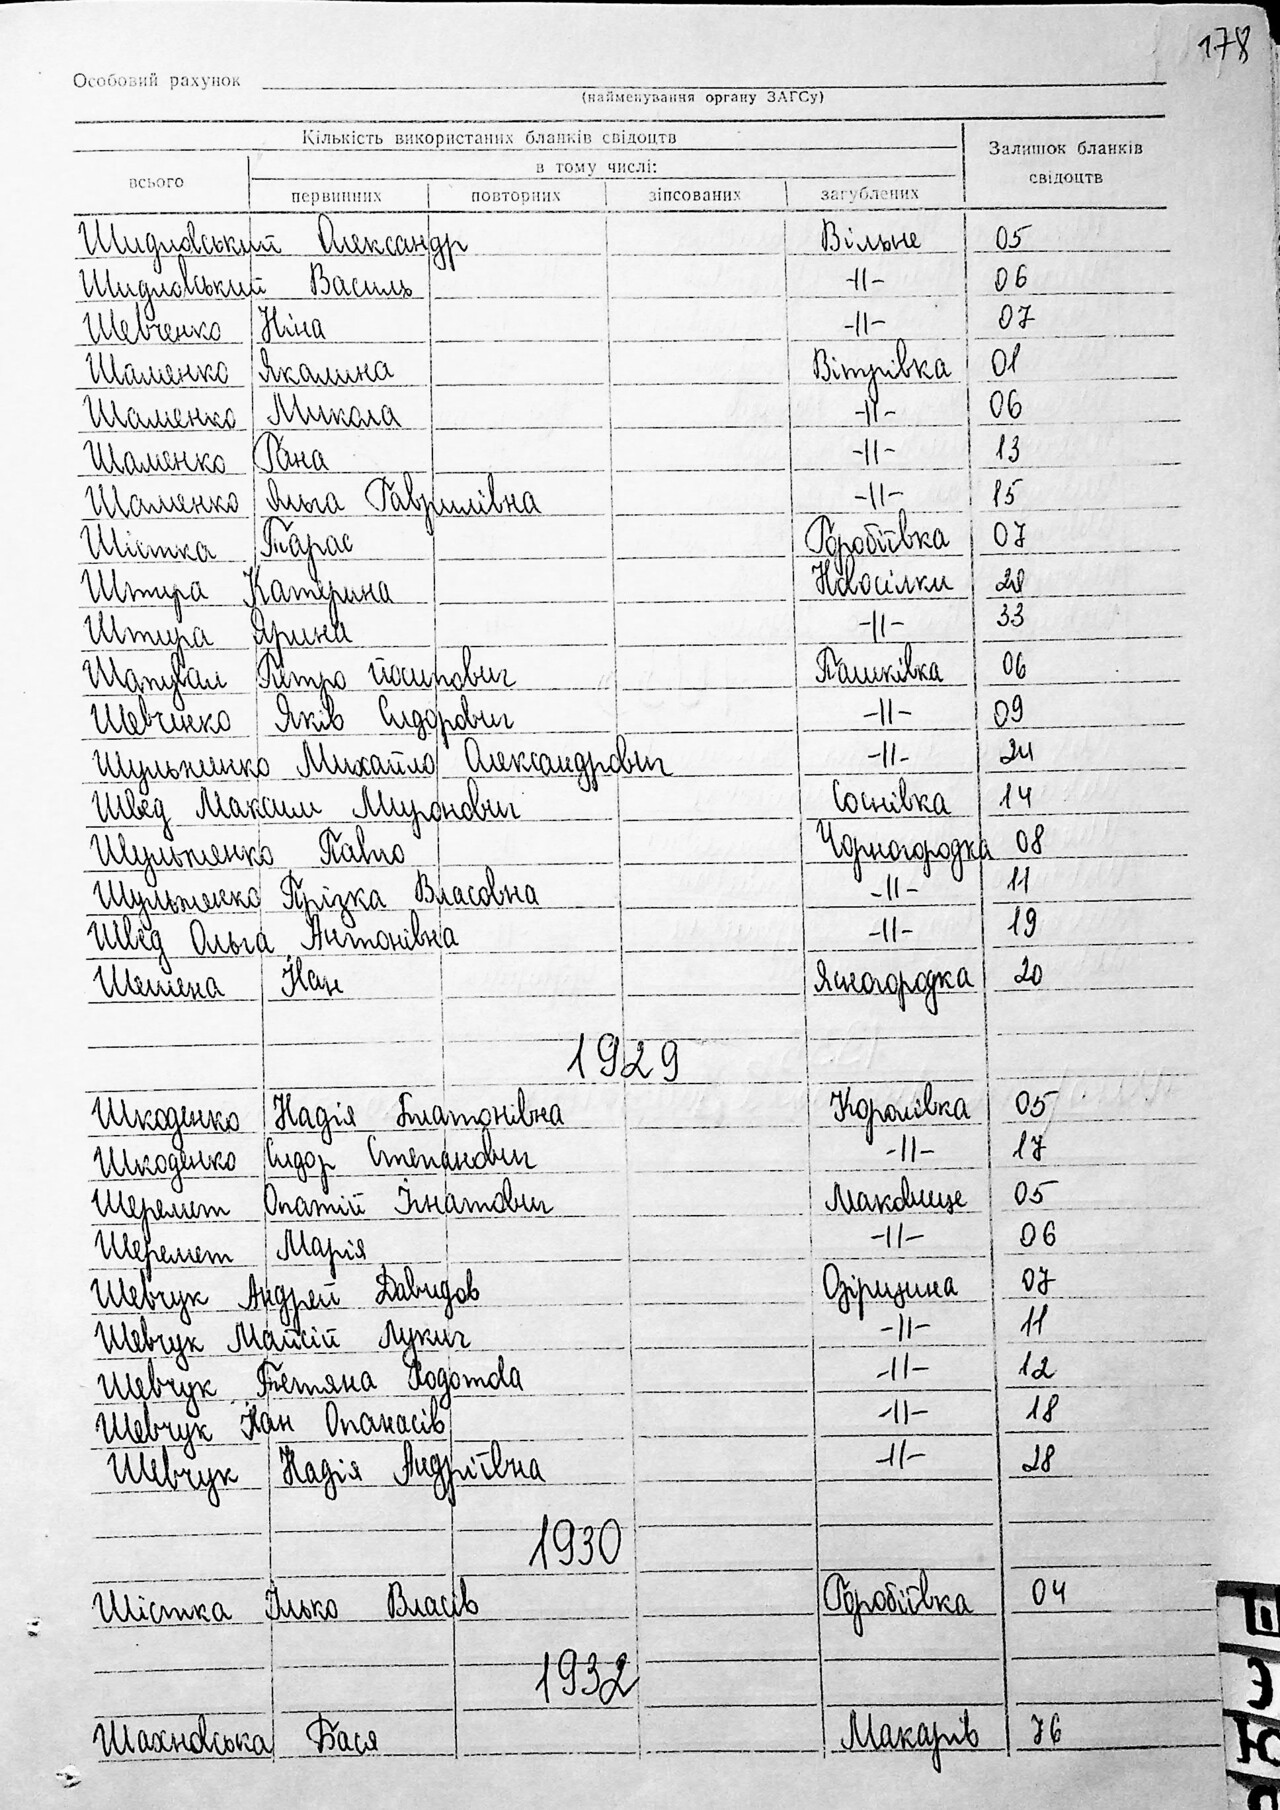 178
Особовий рахунок
(найменування органу ЗАГСу)
Кількість використаних бланків свідоцтв
Залишок бланків свідоцтв
в тому числі:
всього первинних повторних зіпсованих загублених
Шидловський Олександр Вільне 05
Шидловський Василь -||- 06
Шевченко Ніна -||- 07
Шаменко Якалина Вітрівка 01
Шаменко Микола -||- 06
Шаменко Гана -||- 13
Шаменко Яльга Гаврилівна -||- 15
Шістка Тарас Горобіївка 07
Штира Катерина Новосілки 20
Штира Ярина -||- 33
Шаповал Петро Йосипович Пашківка 06
Шевченко Яків Сидорович -||- 09
Шульженко Михайло Олександрович -||- 24
Швед Максим Миронович Соснівка 14
Шульженко Павло Чорногородка 08
Шульженко Прізка Власовна -||- 11
Швед Ольга Антонівна -||- 19
Шемена Йан Ясногородка 20
1929
Шкоденко Надія Платонівна Королівка 05
Шкоденко Сидор Степанович -||- 17
Шеремет Опатій Ігнатович Маковище 05
Шеремет Марія -||- 06
Шевчук Андрей Давидов Озірщина 07
Шевчук Мойсій Лукич -||- 11
Шевчук Тетяна Федотова -||- 12
Шевчук Йан Опанасів -||- 18
Шевчук Надія Андріївна -||- 28
1930
Шістка Ілько Власів Горобіївка 04
1932
Шахновська Бася Макарів 76
Э
Ю